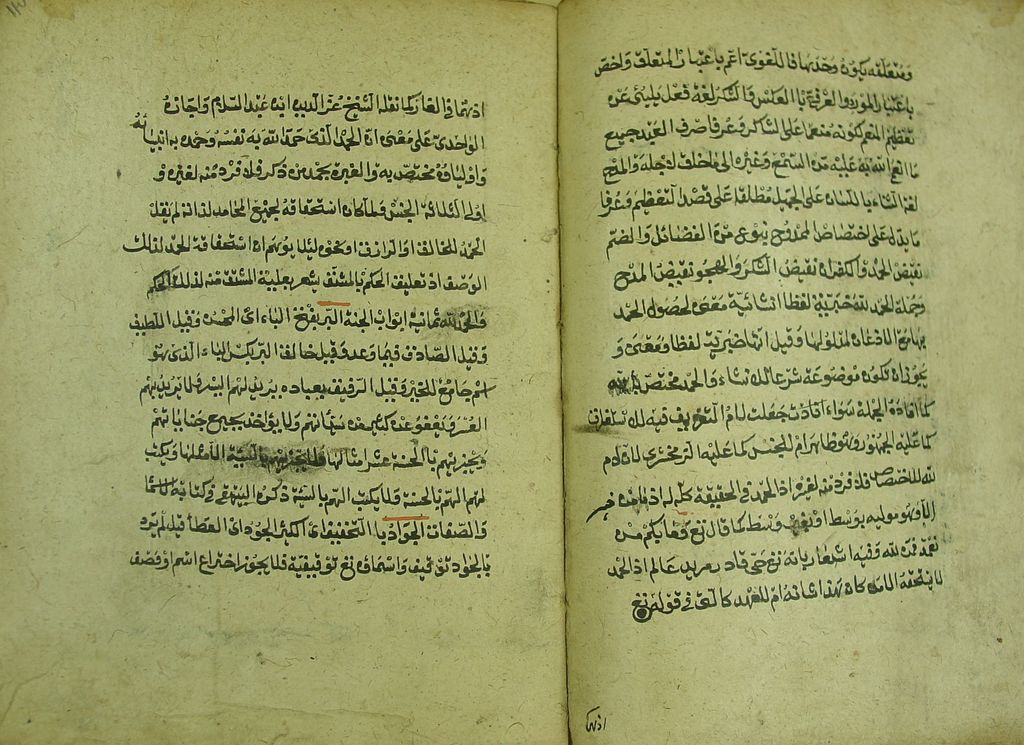 ومتعلقه يكون وحدها فاللغوي اعم باعتبار المتعلق واخص
باعتبار المورد والعرفي بالعكس والشكر لغة فعل ينبئ عن
تعظيم المنعم لكونه منعما على الشاكر وعرفا صرف العبد جميع
ما انعم الله به عليه من السمع وغيره الى ما خلق لاجله والمدح
لغة الثناء باللسان على الجميل مطلقا على قصد التعظيم وعرفا
ما يدل على اختصاص الممدوح بنوع من الفضائل والضم
نقيض الحمد والكفران نقيض الشكر والهجو نقيض المدح
وجملة الحمد لله خبرية لفظا انشائية معنى لحصول الحمد
بها مع الاذعان لمدلولها وقيل انها خبرية لفظا ومعنى و
يجوز ان تكون موضوعة شرعا للانشاء والحمد مختص بالله
كما افادته الجملة سواء جعلت لام التعريف فيه للاستغراق
كما عليه الجمهور وهو ظاهر ام للجنس كما عليه الزمخشري لان لام
لله للاختصاص فلا فرد منه لغيره اذ الحمد في الحقيقة كله له اذ ما من خير
الا وهو موليه بوسط او بغير وسط كما قال تع وما بكم من
نعمة فمن الله وفيه اشعار بانه تع حي قادر مريد عالم اذ الحمد
لا يستحقه الا من كان هذا شانه ام للعهد كالتي في قوله تع
اذ هما
اذ هما في الغار كما نقله الشيخ عز الدين ابن عبد السلام واجازه
الواحدي على معنى ان الحمد الذي حمد الله به نفسه وحمده به انبيائه
واوليائه مختص به والعبرة بحمد من ذكر فلا فرد منه لغيره و
اولى الثلاثة الجنس ولما كان استحقاقه لجميع المحامد لذاته لم يقل
الحمد للخالق او للرازق او نحوه ليلا يوهم ان استحقاقه الحمد لذلك
الوصف اذ تعليق الحكم بالمشتق يشعر بعلية المشتق منه لذلك الحكم
والحمد لله ثمانية ابواب الجنة البر بفتح الباء اي المحسن وقيل اللطيف
وقيل الصادق فيما وعد وقيل خالق البر بكسر الباء الذي هو
اسم جامع للخير وقيل الرفيق بعباده يريد لهم اليسر ولا يريد بهم
العسر ويعفو عن كثير من سيئاتهم ولا يؤاخذ بجميع جناياتهم
ويجزيهم بالحسنة عشر امثالها ولا يجزيهم بالسيئة الا مثلها ويكتب
لهم الهم بالحسنة ولا يكتب الهم بالسيئة ذكره البيهقي في كتابه الاسما
والصفات الجواد بالتخفيف اي الكثير الجود اي العطا قيل لم يرد
بالجواد توقيف واسماؤه تع توقيفية فلا يجوز اختراع اسم او وصف